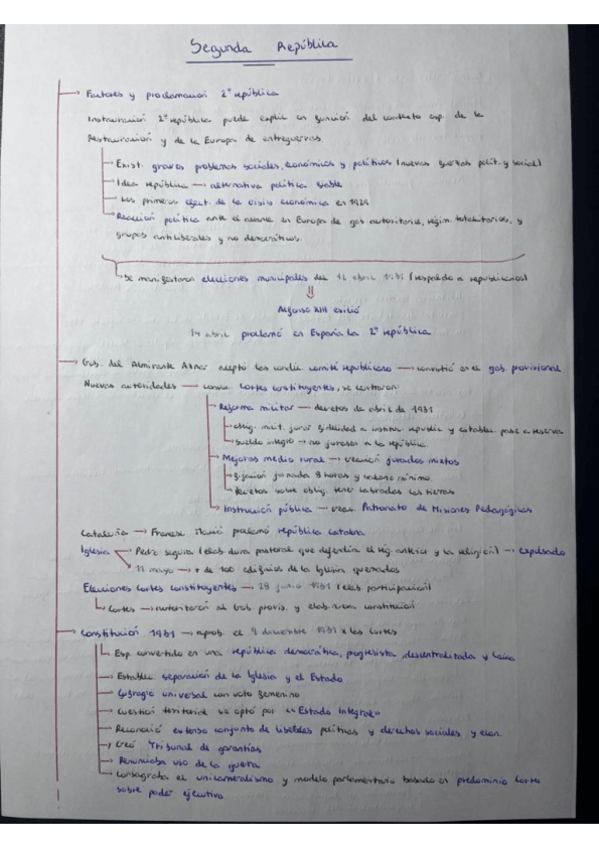 Segunda República
Factores y proclamación 2ª república
Instauración 2ª república puede explic en función del contexto esp. de la
Restauración y de la Europa de entreguerras.
Exist. graves problemas sociales, económicos y políticos (nuevas fuerzas polít. y social)
Idea república → alternativa política viable
Los primeros efect. de la crisis económica en 1929
Reacción política ante el avance en Europa de gob autoritarios, régim. totalitarios, y
grupos antiliberales y no democráticos.
Se manifestaron elecciones municipales del 12 abril 1931 (respaldo a republicanos)
Alfonso XIII exilió
14 abril proclamó en España la 2ª república
Gob. del Almirante Aznar aceptó las condic. comité republicano → convirtió en el gob. provisional
Nuevas autoridades → convoc. Cortes constituyentes, se centraron:
Reforma militar → decretos de abril de 1931
oblig. milit. jurar fidelidad a instituc. republic y establec. pase a reserva
sueldo íntegro → no jurasen a la república
Mejoras medio rural → creación jurados mixtos
fijación jornada 8 horas y salario mínimo
decretos sobre oblig. tener labradas las tierras
Instrucción pública → crear Patronato de Misiones Pedagógicas
Cataluña → Francesc Macià proclamó república catalana
Iglesia
Pedro Segura (elab. dura pastoral que defendía el rég. anterior y la religión) → expulsado
11 mayo → + de 100 edificios de la Iglesia quemados
Elecciones Cortes constituyentes → 28 junio 1931 (elev. participación)
Cortes → autorizaron al Gob. provis. y elab. nueva constitución
Constitución 1931 → aprob. el 9 diciembre 1931 x las Cortes
Esp. convertida en una república democrática, progresista, descentralizada y laica
Establec separación de la Iglesia y el Estado
Sufragio universal con voto femenino
Cuestión territorial se optó por «Estado Integral»
Reconoció extenso conjunto de libertades políticas y derechos sociales y econ.
Creó Tribunal de garantías
Renunciaba uso de la guerra
Consagraba el unicameralismo y modelo parlamentario basado en predominio Cortes
sobre poder ejecutivo